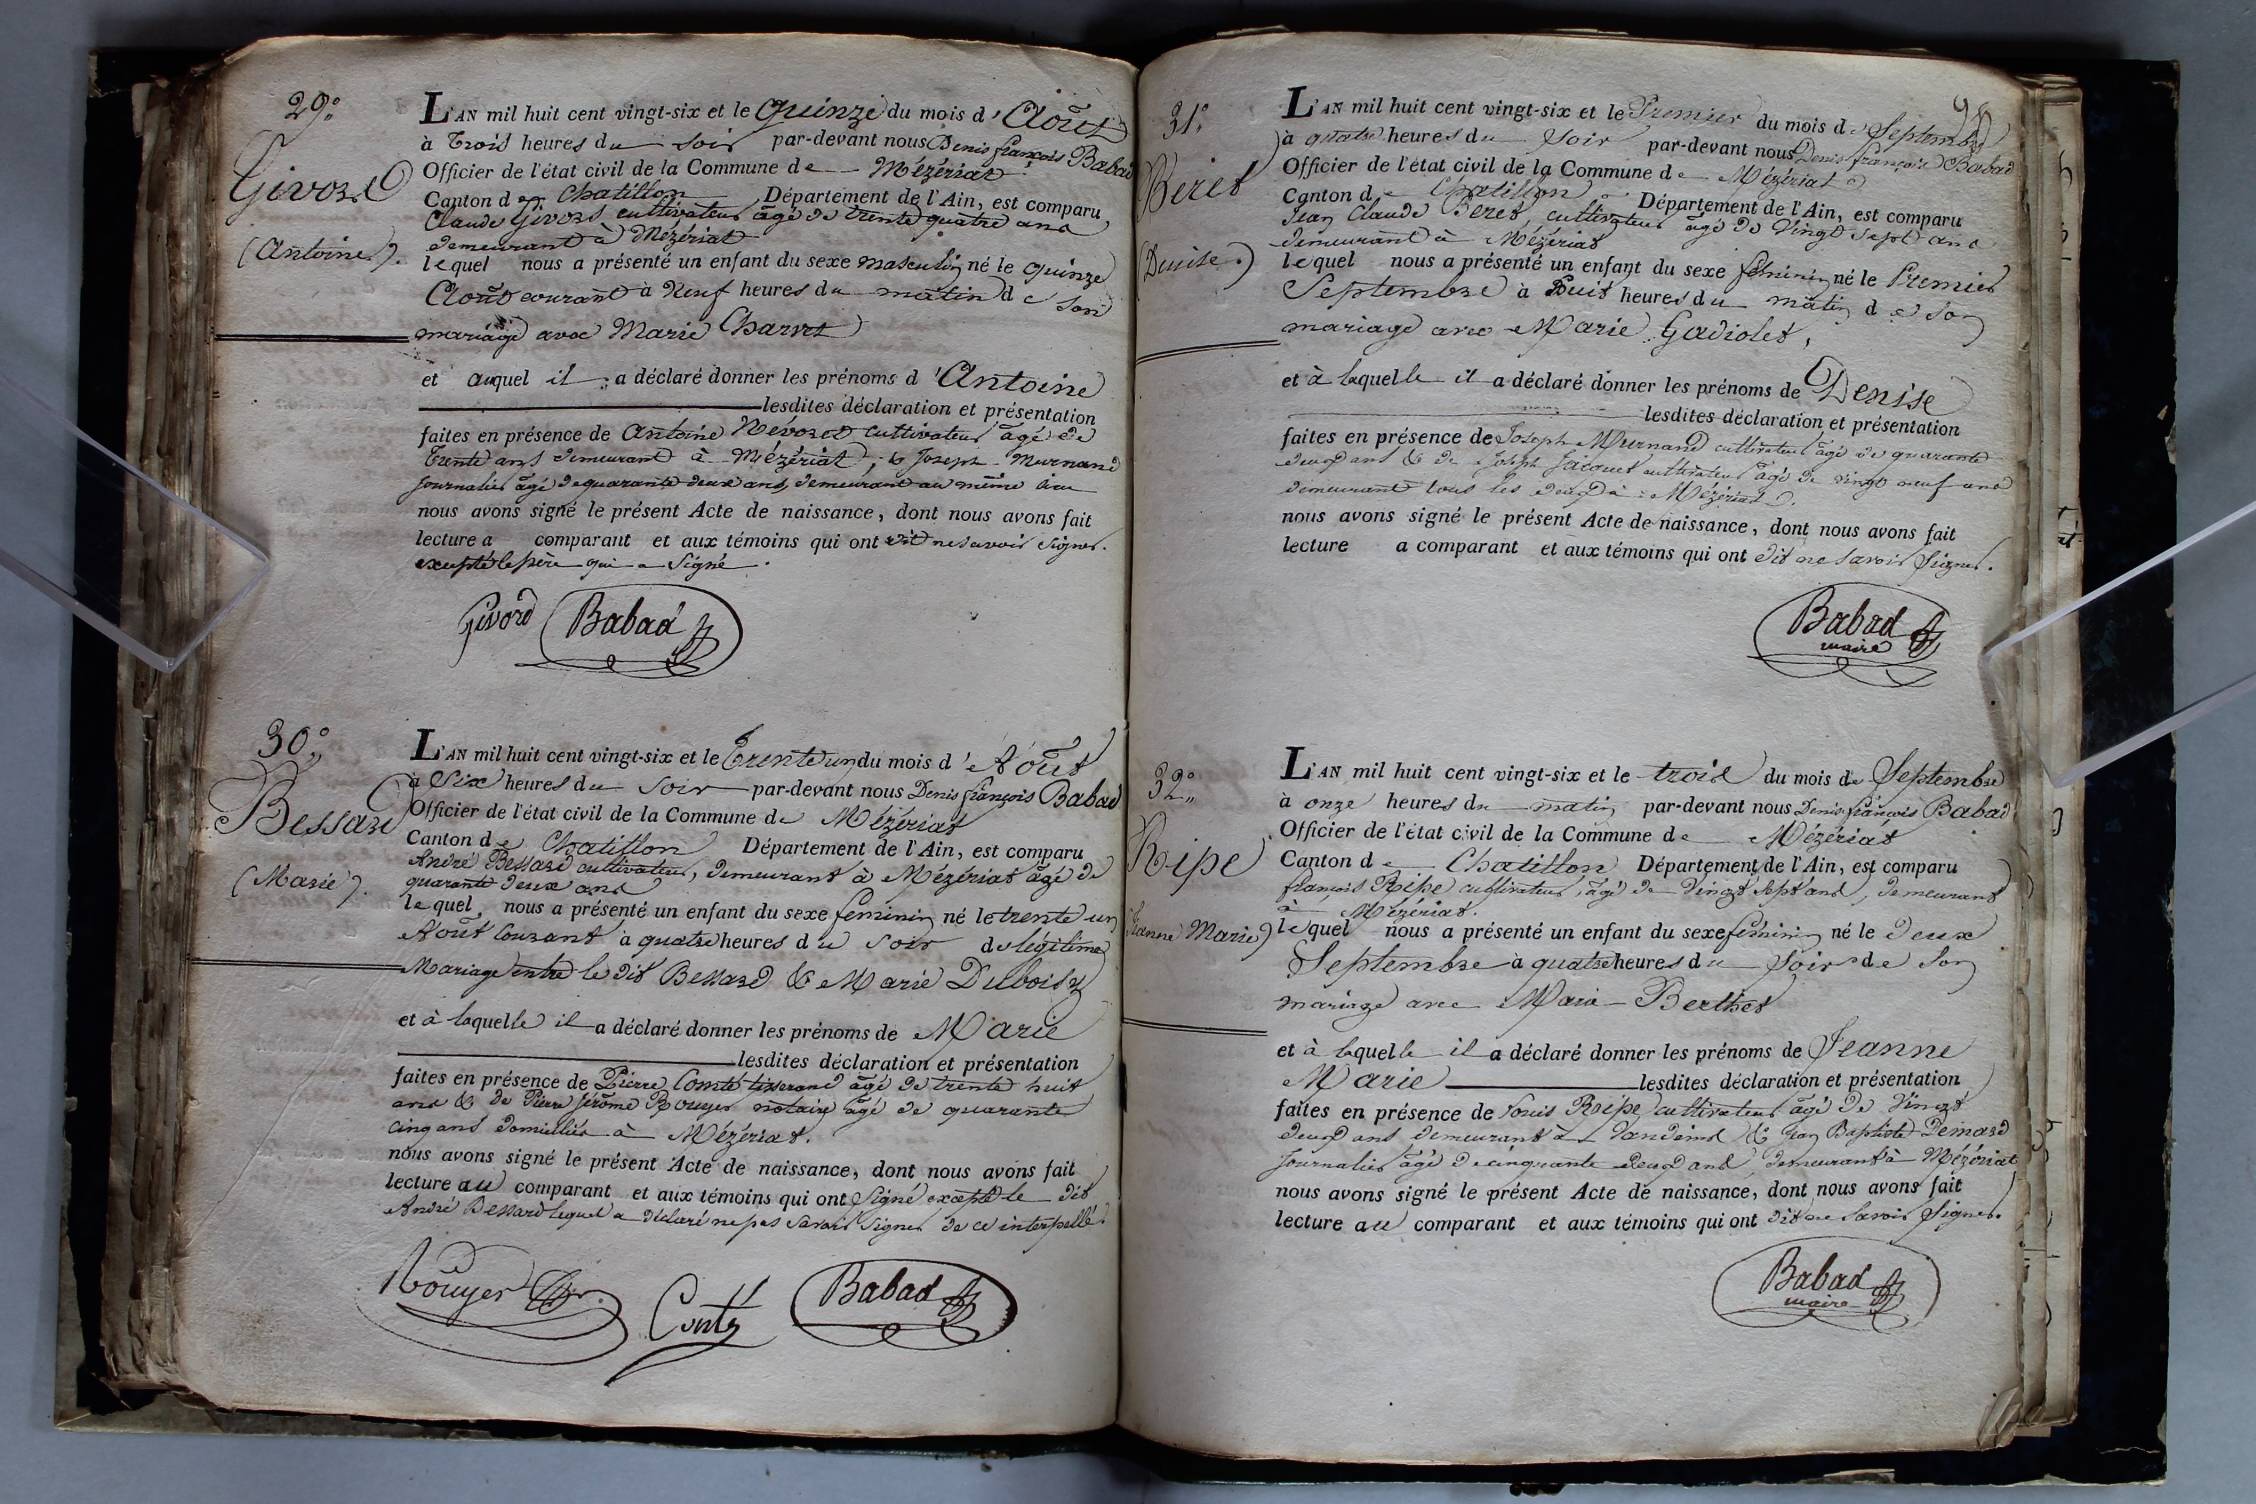 29.°
Givord
(Antoine).
L'AN mil huit cent vingt-six et le quinze du mois d'Août
à trois heures du soir par-devant nous Denis françois Babad
Officier de l'état civil de la Commune de Mézériat
Canton de Chatillon Département de l'Ain, est comparu
Claude Givord cultivateur âgé de trente quatre ans
demeurant à Mézériat
lequel nous a présenté un enfant du sexe masculin né le quinze
Août courant à Neuf heures du matin de son
mariage avec Marie Charvet
et auquel il a déclaré donner les prénoms d'Antoine
lesdites déclaration et présentation
faites en présence de Antoine Névoret cultivateur âgé de
trente ans demeurant à Mézériat, & Joseph Murnand
journalier âgé de quarante deux ans, demeurant au même lieu
nous avons signé le présent Acte de naissance, dont nous avons fait
lecture a comparant et aux témoins qui ont dit ne savoir signer.
excepté le père qui a signé.
Givord Babad
30.°
Bessard
(Marie).
L'AN mil huit cent vingt-six et le trente un du mois d'Août
à Six heures du soir par-devant nous Denis françois Babad
Officier de l'état civil de la Commune de Mézériat
Canton de Chatillon Département de l'Ain, est comparu
André Bessard cultivateur, demeurant à Mézériat âgé de
quarante deux ans
lequel nous a présenté un enfant du sexe feminin né le trente un
Août courant à quatre heures du soir de légitime
Mariage entre le dit Bessard & Marie Duboisy
et à laquelle il a déclaré donner les prénoms de Marie
lesdites déclaration et présentation
faites en présence de Pierre Comte tisserand âgé de trente huit
ans & de Pierre Jérôme Rouyer notaire âgé de quarante
cinq ans domiciliés à Mézériat.
nous avons signé le présent Acte de naissance, dont nous avons fait
lecture au comparant et aux témoins qui ont signé excepté le dit
André Bessard lequel a déclaré ne pas savoir signer de ce interpellé.
Rouyer Babad
31.°
Beret
(Denise.)
L'AN mil huit cent vingt-six et le Premier du mois de Septembre
à quatre heures du soir par-devant nous Denis françois Babad
Officier de l'état civil de la Commune de Mézériat
Canton de Chatillon Département de l'Ain, est comparu
Jean Claude Beret, cultivateur âgé de vingt sept ans
demeurant à Mézériat
lequel nous a présenté un enfant du sexe féminin né le Premier
Septembre à huit heures du matin de son
mariage avec Marie Gadiolet,
et à laquelle il a déclaré donner les prénoms de Denise
lesdites déclaration et présentation
faites en présence de Joseph Murnand cultivateur âgé de quarante
deux ans & de Joseph Jacquet cultivateur âgé de vingt neuf ans
demeurant tous les deux à Mézériat.
nous avons signé le présent Acte de naissance, dont nous avons fait
lecture a comparant et aux témoins qui ont dit ne savoir signer.
Babad
maire
32.°
Ripe
(Jeanne Marie)
L'AN mil huit cent vingt-six et le trois du mois de Septembre
à onze heures du matin par-devant nous Denis françois Babad
Officier de l'état civil de la Commune de Mézériat
Canton de Chatillon Département de l'Ain, est comparu
françois Ripe cultivateur, âgé de vingt sept ans, demeurant
à Mézériat.
lequel nous a présenté un enfant du sexe féminin né le deux
Septembre à quatre heures du soir de son
mariage avec Marie Berthet
et à laquelle il a déclaré donner les prénoms de Jeanne
Marie lesdites déclaration et présentation
faites en présence de Louis Ripe cultivateur âgé de vingt
deux ans demeurant à Vandeins & Jean Baptiste Demard
journalier âgé de cinquante deux ans, demeurant à Mézériat
nous avons signé le présent Acte de naissance, dont nous avons fait
lecture au comparant et aux témoins qui ont dit ne savoir signer.
Babad
maire